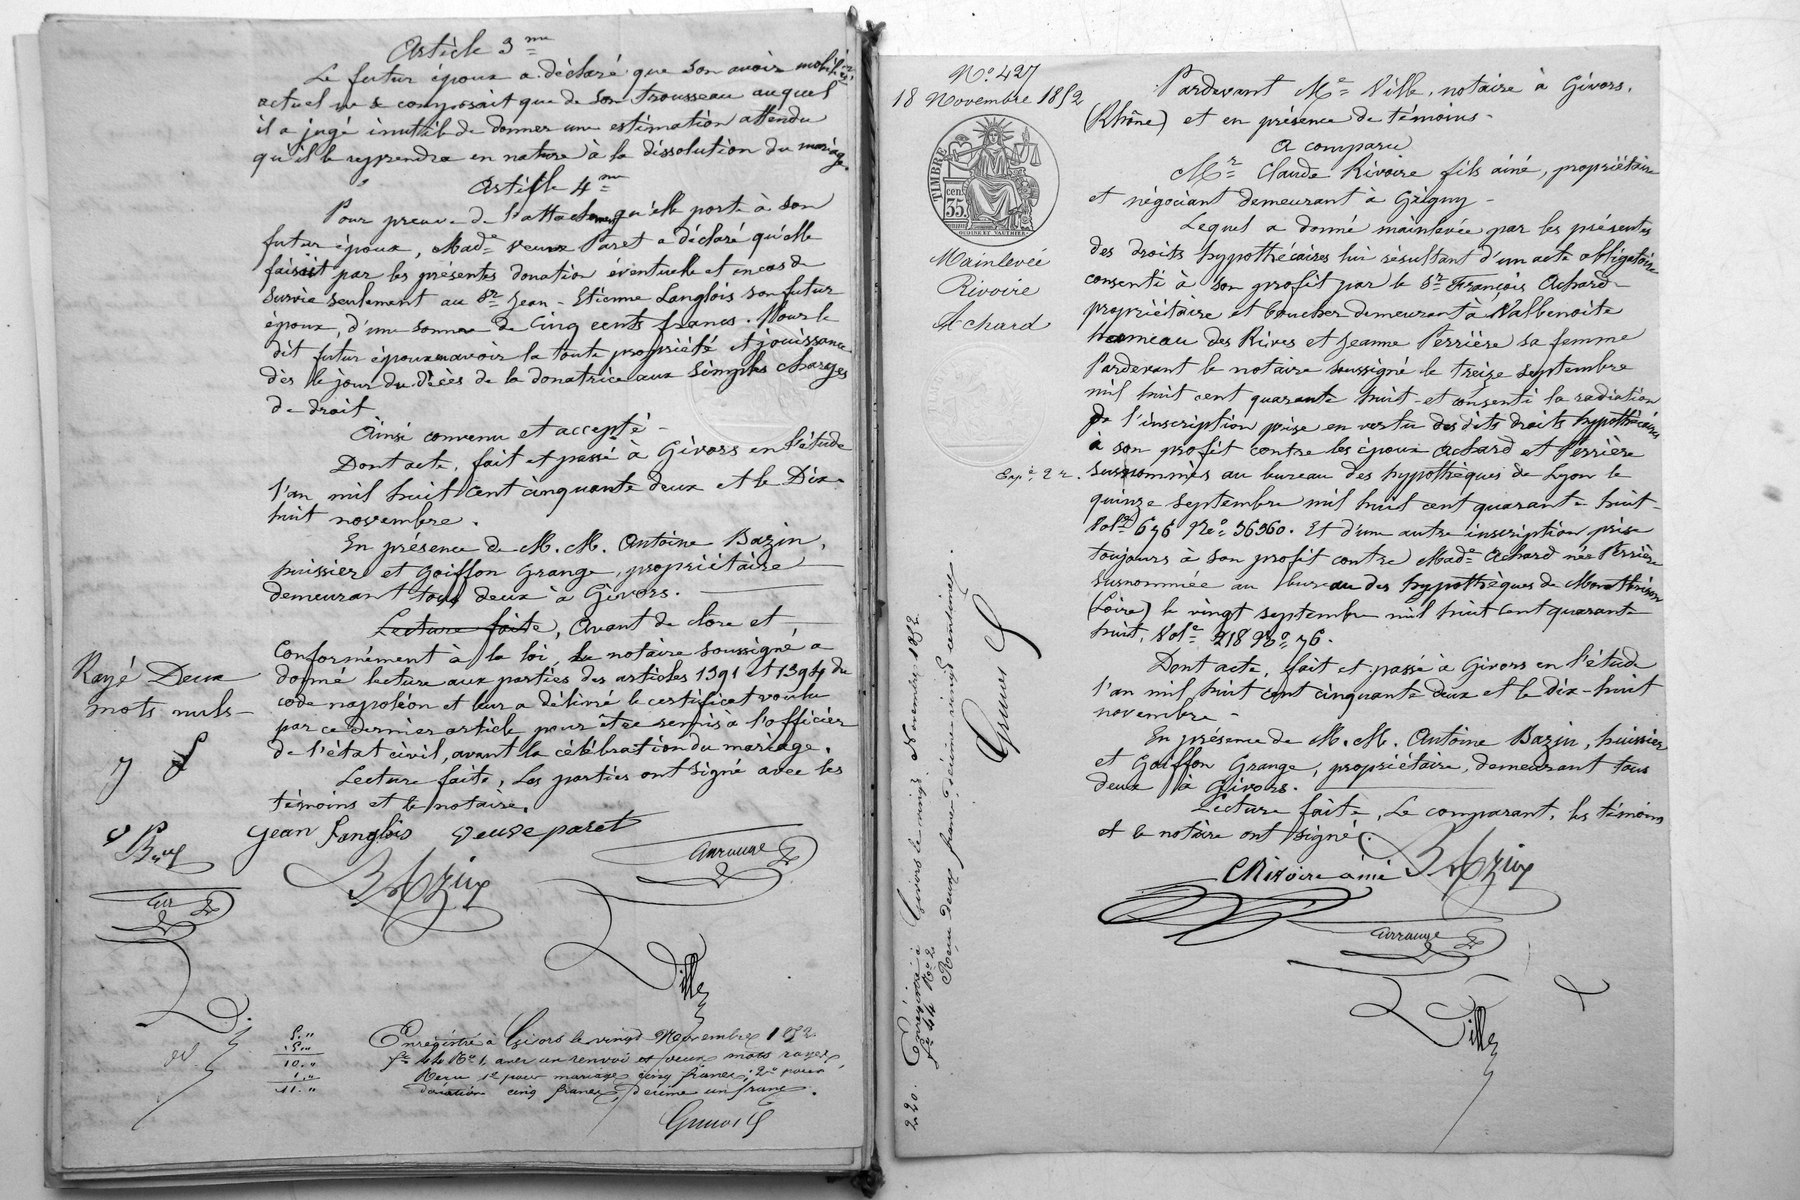 Article 3me
Le futur époux a déclaré que son avoir mobilier
actuel ne se composait que de son trousseau auquel
il a jugé inutile de donner une estimation attendu
qu'il le reprendra en nature à la dissolution du mariage.
Article 4me
Pour preuve de l'attachement qu'elle porte à son
futur époux, Made veuve Paret a déclaré qu'elle
faisait par les présentes donation éventuelle et en cas de
survie seulement au Sr Jean-Etienne Langlois son futur
époux, d'une somme de Cinq cents francs. Pour le
dit futur époux en avoir la toute propriété et jouissance
dès le jour du décès de la donatrice aux simples charges
de droit
Ainsi convenu et accepté -
Dont acte, fait et passé à Givors en l'étude
l'an mil huit cent cinquante deux et le Dix-
huit novembre.
En présence de M. M. Antoine Bazin,
huissier et Goiffon Grange, propriétaire
demeurant tous deux à Givors.
Lecture faite, Avant de clore et
conformément à la loi, le notaire soussigné a
donné lecture aux parties des articles 1391 et 1394 du
code napoléon et leur a délivré le certificat voulu
par ce dernier article pour être remis à l'officier
de l'état civil, avant la célébration du mariage.
Lecture faite, Les parties ont signé avec les
témoins et le notaire.
Rayé Deux
mots nuls -
Jean Langlois veuve paret
Bazin
Ville
5. "
5. "
10. "
1. "
11. "
Enregistré à Givors le vingt Novembre 1852
fo 44 No 1, avec un renvoi et deux mots rayés,
Reçu 1o pour mariage cinq francs; 2o pour
donation cinq francs, décime un franc.
No 427
18 Novembre 1852
TIMBRE
35 cen.
Mainlevée
Rivoire
Achard
Exp. 2 r.
220. Enregistré à Givors le vingt Novembre 1852
fo 44 No 2
Reçu deux francs, décime vingt centimes.
Pardevant Me Ville, notaire à Givors,
(Rhône) et en présence de témoins -
A comparu
Mr Claude Rivoire fils ainé, propriétaire
et négociant demeurant à Grigny -
Lequel a donné mainlevée par les présentes
des droits hypothécaires lui résultant d'un acte obligatoire
consenti à son profit par le Sr François Achard
propriétaire et boucher demeurant à Valbenoite
hameau des Rives et Jeanne Perrière sa femme
Pardevant le notaire soussigné le treize septembre
mil huit cent quarante huit - et consenti la radiation
de l'inscription prise en vertu des dits droits hypothécaires
à son profit contre les époux Achard et Perrière
susnommés au bureau des hypothèques de Lyon le
quinze septembre mil huit cent quarante huit -
Vole 676 No 36360. Et d'une autre inscription prise
toujours à son profit contre Made Achard née Perrière
susnommée au bureau des hypothèques de Montbrison
(Loire) le vingt septembre mil huit cent quarante
huit, Vole 218 No 76.
Dont acte, fait et passé à Givors en l'étude
l'an mil huit cent cinquante deux et le dix-huit
novembre -
En présence de M. M. Antoine Bazin, huissier
et Goiffon Grange, propriétaire, demeurant tous
deux à Givors.
Lecture faite, Le comparant, les témoins
et le notaire ont signé.
C Rivoire ainé Bazin
Ville